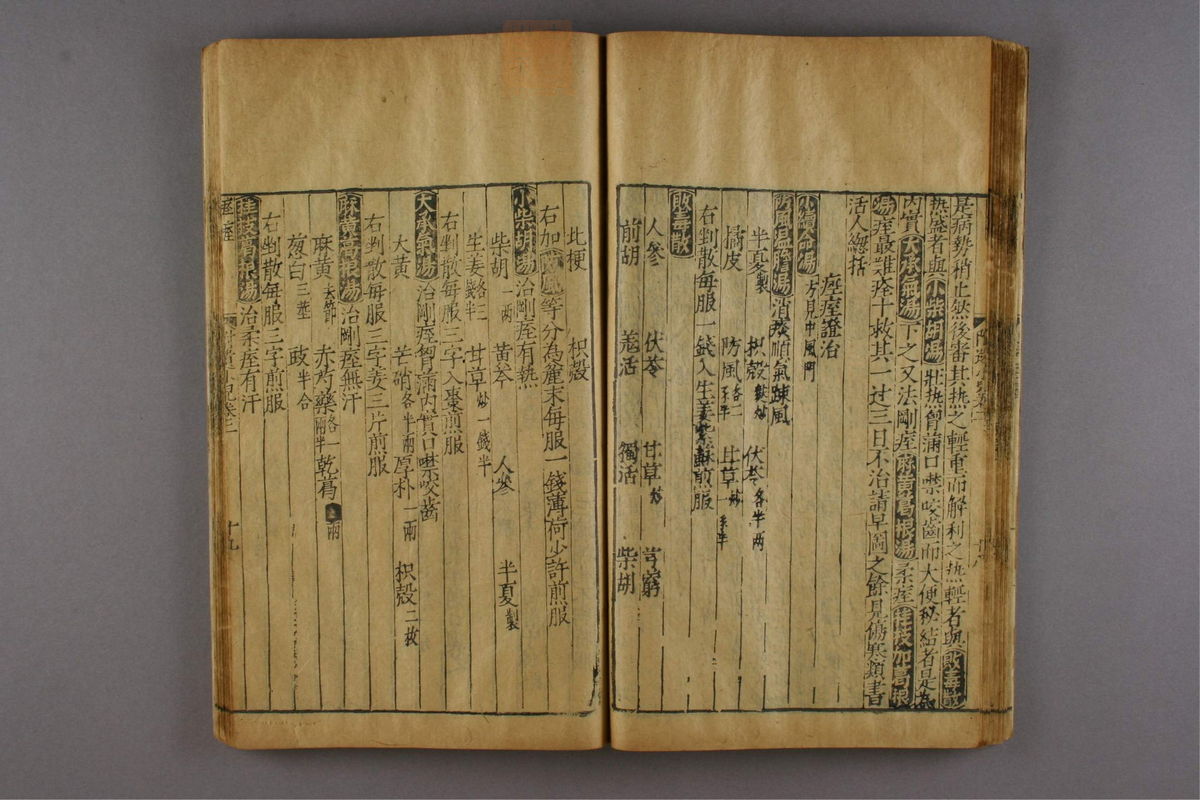 是病勢稍止然後審其热之輕重而解利之热輕者與敗毒散
热盛者與小柴胡湯壯热胷滿口噤咬齒而大便秘結者是為
内實大承氣湯下之又法剛痓麻黄葛根湯柔痓桂枝加葛根
湯痓最難痊十救其一过三日不治請早圖之餘見傷寒類書
活人緫括
痙痓證治
小續命湯 方見中風門
防風温膽湯 消痰順氣踈風
半夏製 枳殼麸炒 伏苓各半两
橘皮 防風各二錢半 甘草炒一錢半
右剉散每服一錢入生姜紫蘇煎服
敗毒散
人參 伏苓 甘草炒 芎藭
前胡 羗活 獨活 柴胡
此梗 枳殼
右加防風等分為麄末每服一錢薄荷少許煎服
小柴胡湯 治剛痓有热
柴胡一两 黄芩 人參 半夏製
生姜 甘草炒一錢半
右剉散每服三字入棗煎服
大承氣湯 治剛痓胷滿内實口噤咬齒
大黄 芒硝各半兩 厚朴一兩 枳殼二枚
右剉散每服三字姜三片煎服
麻黄葛根湯 治剛痓無汗
麻黄去節 赤芍藥各一兩半 乾葛兩
葱白三莖 豉半合
右剉散每服三字煎服
桂枝葛根湯 治柔痓有汗
痙痓
卷三
十九